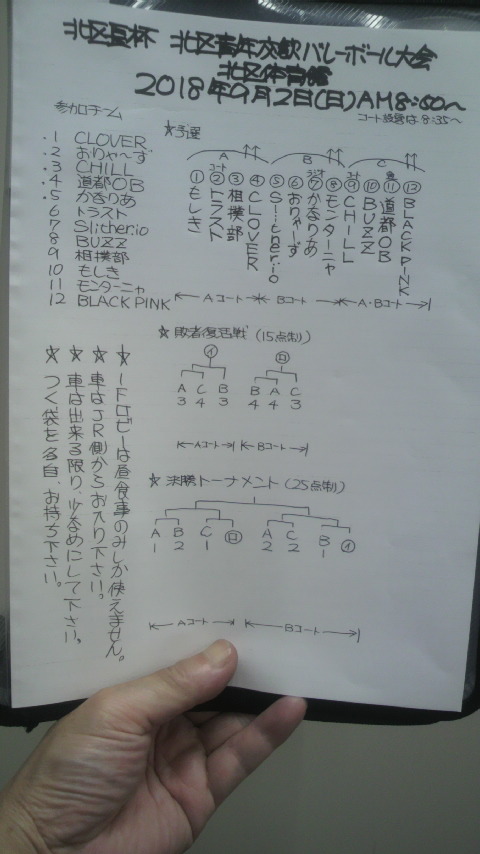 北区夏杯 北区青年交歓バレーボール大会
北区体育館
2018年9月2日(日)AM8:00~
コート設営は8:35~
参加チーム
.1 CLOVER
.2 おりゃ~ず
.3 CHILL
.4 道都OB
.5 かなりあ
6 トラスト
7 Slither.io
8 BUZZ
9 相撲部
10 もしき
11 モンターニャ
12 BLACK PINK
☆予選
A B C
① もしき
② トラスト
③ 相撲部
④ CLOVER
⑤ Slither.io
⑥ おりゃーず
⑦ かなりあ
⑧ モンターニャ
⑨ CHILL
⑩ BUZZ
⑪ 道都OB
⑫ BLACKPINK
Aコート Bコート A・Bコート
☆敗者復活戦(15点制)
イ ロ
A C B B A C
3 4 3 4 4 3
Aコート Bコート
☆決勝トーナメント(25点制)
A B C ロ A C B イ
1 2 1 2 2 1
Aコート Bコート
☆1Fロビーは昼食事のみしか使えません。
☆車はJR側からお入り下さい。
☆車は出来る限り、少なめにして下さい。
☆つく袋を各自、お持ち下さい。